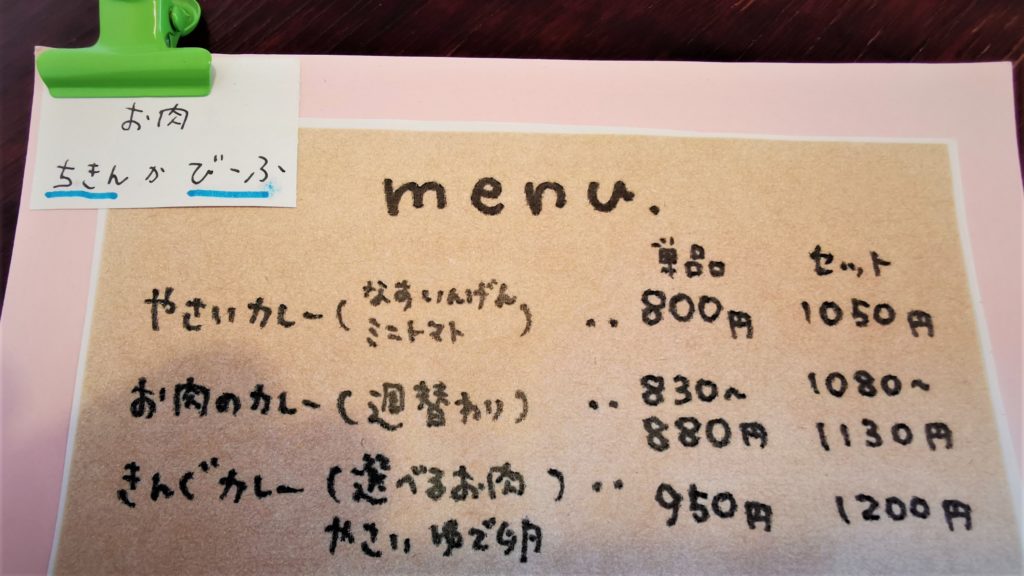 お肉
ちきん か びーふ
menu.
単品 セット
やさいカレー(なすいんげん ミニトマト) ‥ 800円 1050円
お肉のカレー(週替わり) ‥ 830〜 1080〜
880円 1130円
きんぐカレー(選べるお肉) ‥ 950円 1200円
やさい ゆで卵